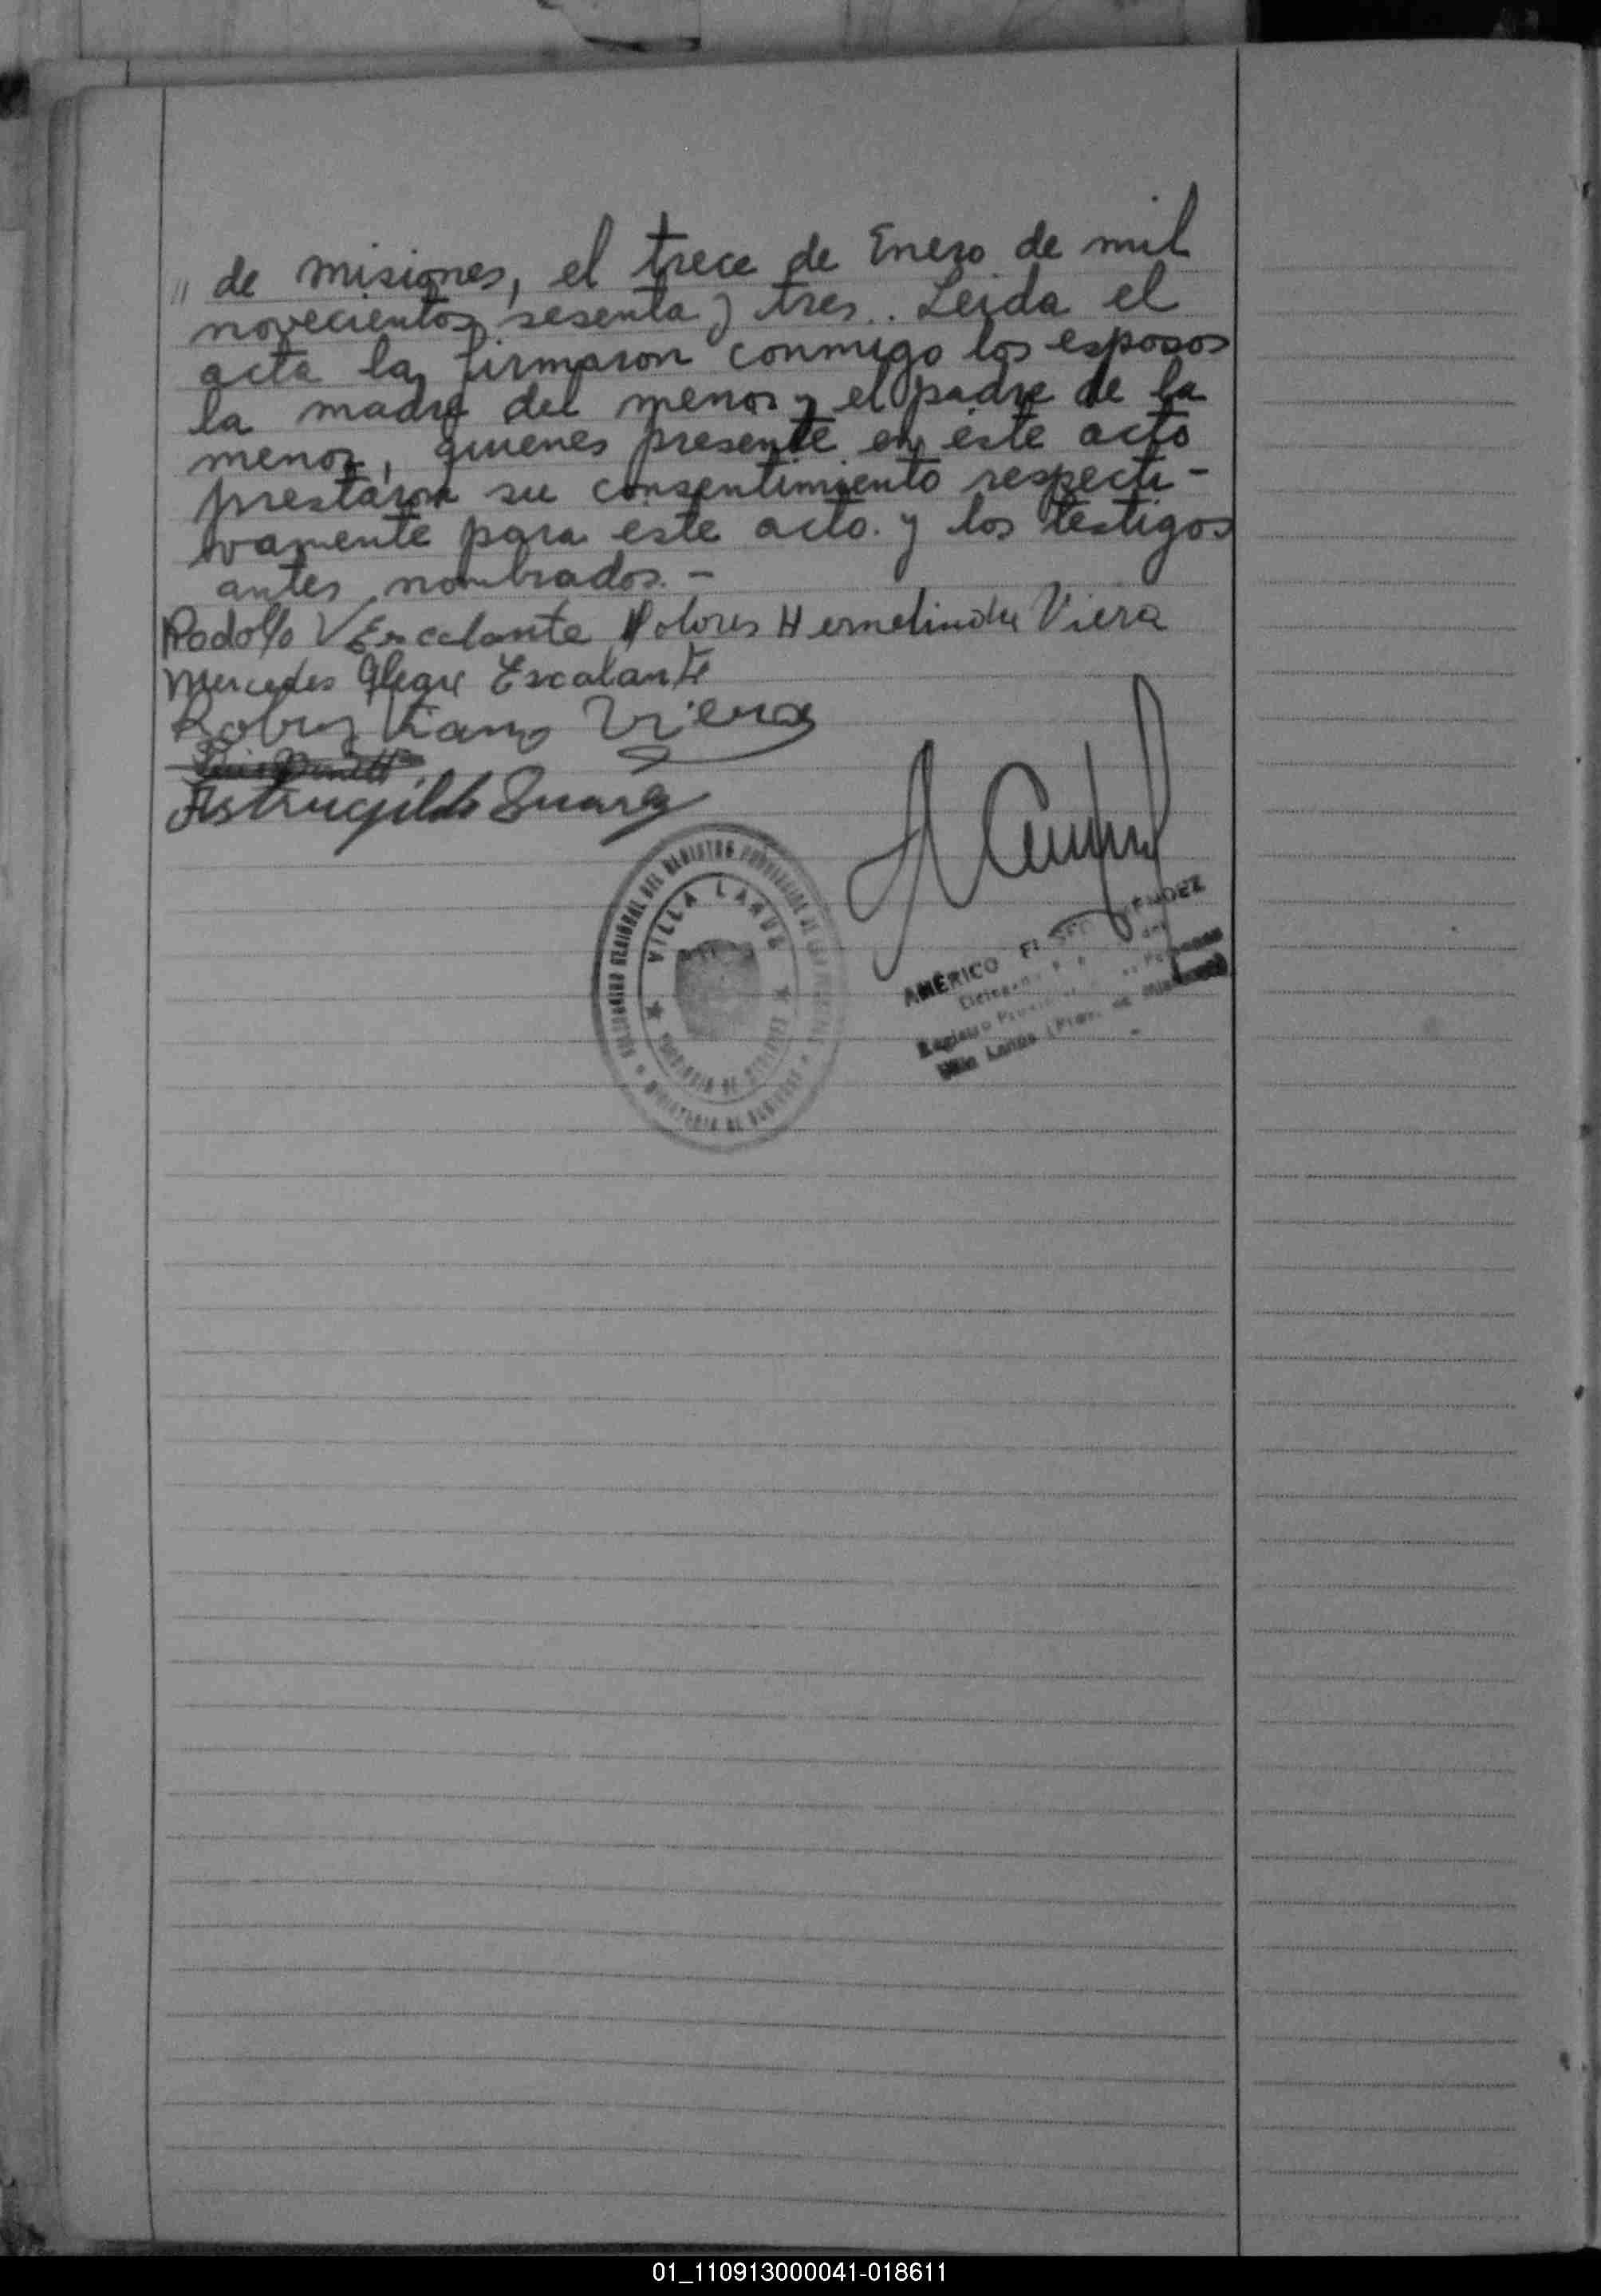 " de misiones, el trece de Enero de mil
novecientos sesenta y tres.. Leida el
acta la firmaron conmigo los esposos
la madre del menor y el padre de la
menor, quienes presente en este acto
prestaron su consentimiento respecti-
vamente para este acto. y los testigos
antes nombrados. -
Rodolfo V Escalante Dolores Hermelinda Viera
Mercedes Alegre Escalante
Viera
VILLA LANUS
AMERICO
Villa Lanus
01_110913000041-018611